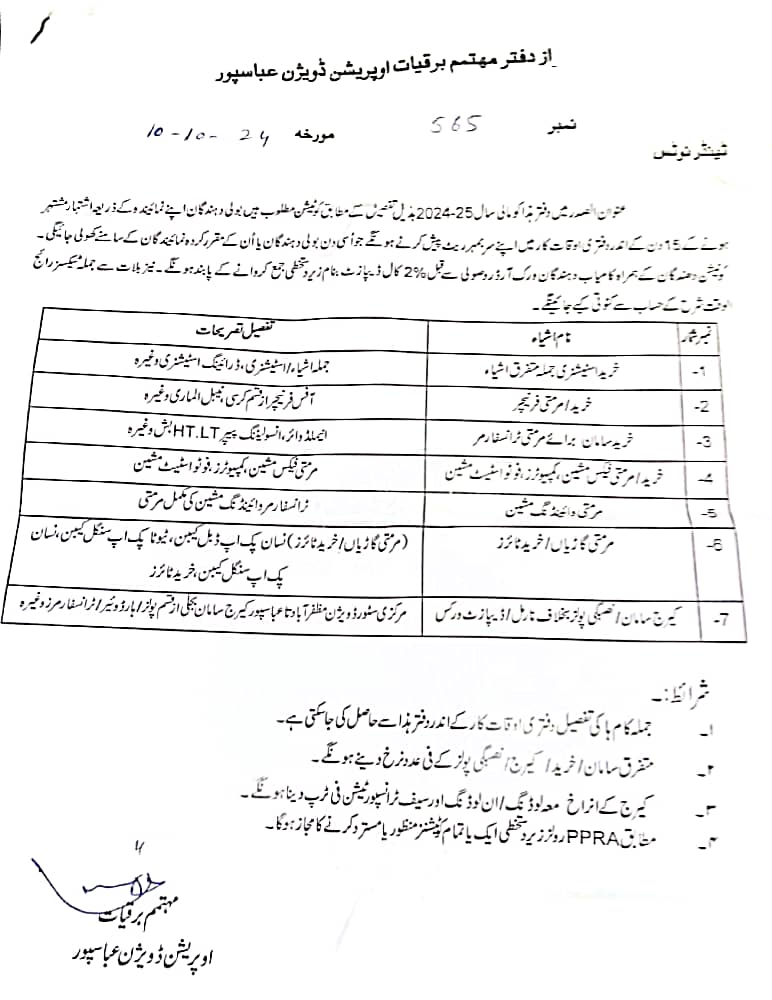 از دفتر مہتمم برقیات اوپریشن ڈویژن عباسپور
نمبر 565 مورخہ 10-10-24
ٹینڈر نوٹس
عنوان الصدر میں دفتر ہذا کو مالی سال 25-2024 بذیل تفصیل کے مطابق کوٹیشن مطلوب ہیں بولی دہندگان اپنے نمائیندہ کے ذریعہ اشتہار مشتہر
ہونے کے 15 دن کے اندر دفتری اوقات کار میں اپنے سربمہر ریٹ پیش کرنے ہونگے جو اُسی دن بولی دہندگان یا اُن کے مقرر کردہ نمائیندگان کے سامنے کھولی جائیگی۔
کوٹیشن دھندگان کے ہمراہ کامیاب دہندگان ورک آرڈر وصولی سے قبل 2% کال ڈیپازٹ بنام زیر دستخطی جمع کروانے کے پابند ہونگے۔ نیز بلات سے جملہ ٹیکسز رائج
الوقت شرح کے حساب سے کٹوتی کیے جائینگے۔
نمبر شمار نام اشیاء تفصیل تصریحات
1- خرید اسٹیشنری جملہ متفرق اشیاء جملہ اشیاء/اسٹیشنری، ڈرائینگ اسٹیشنری وغیرہ
2- خرید/مرمتی فرنیچر آفس فرنیچر از قسم کرسی، ٹیبل الماری وغیرہ
3- خرید سامان برائے مرمتی ٹرانسفارمر انیملڈ وائر، انسولیٹنگ پیپر HT.LT بش وغیرہ
4- خرید/مرمتی فیکس مشین، کمپیوٹرز، فوٹو اسٹیٹ مشین مرمتی فیکس مشین، کمپیوٹرز، فوٹو اسٹیٹ مشین
5- مرمتی وائینڈنگ مشین ٹرانسفارمر وائینڈنگ مشین کی مکمل مرمتی
6- مرمتی گاڑیاں/خرید ٹائرز (مرمتی گاڑیاں/خرید ٹائرز) نسان پک اپ ڈبل کیبن، ٹیوٹا پک اپ سنگل کیبن، نسان
پک اپ سنگل کیبن، خرید ٹائرز
7- کیرج سامان/تنصیبگی پولز بخلاف نارمل/ڈیپازٹ ورکس مرکزی سٹور ڈویژن مظفرآباد تا عباسپور کیرج سامان بجلی از قسم پولز/ہارڈوئیر/ٹرانسفارمرز وغیرہ
شرائط:۔
۱۔ جملہ کام ہا کی تفصیل دفتری اوقات کار کے اندر دفتر ہذا سے حاصل کی جاسکتی ہے۔
۲۔ متفرق سامان/خرید/کیرج/تنصیبگی پولز کے فی عدد نرخ دینے ہونگے۔
۳۔ کیرج کے انراخ معہ لوڈنگ/ان لوڈنگ اور سیف ٹرانسپورٹیشن فی ٹرپ دینا ہونگے۔
۴۔ مطابق PPRA رولز زیر دستخطی ایک یا تمام کوٹیشنز منظور یا مسترد کرنے کا مجاز ہوگا۔
مہتمم برقیات
اوپریشن ڈویژن عباسپور